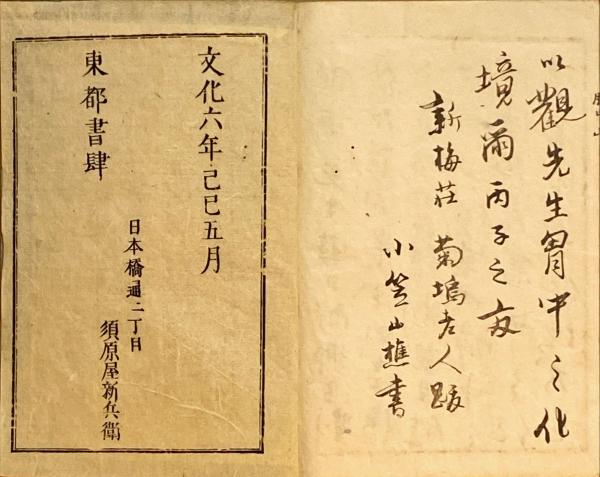 以觀先生胷中之化
境爾丙子之夜
新梅荘 菊塢老人跋
小笠山樵書
文化六年己巳五月
東都書肆
日本橋通二丁目
須原屋新兵衛